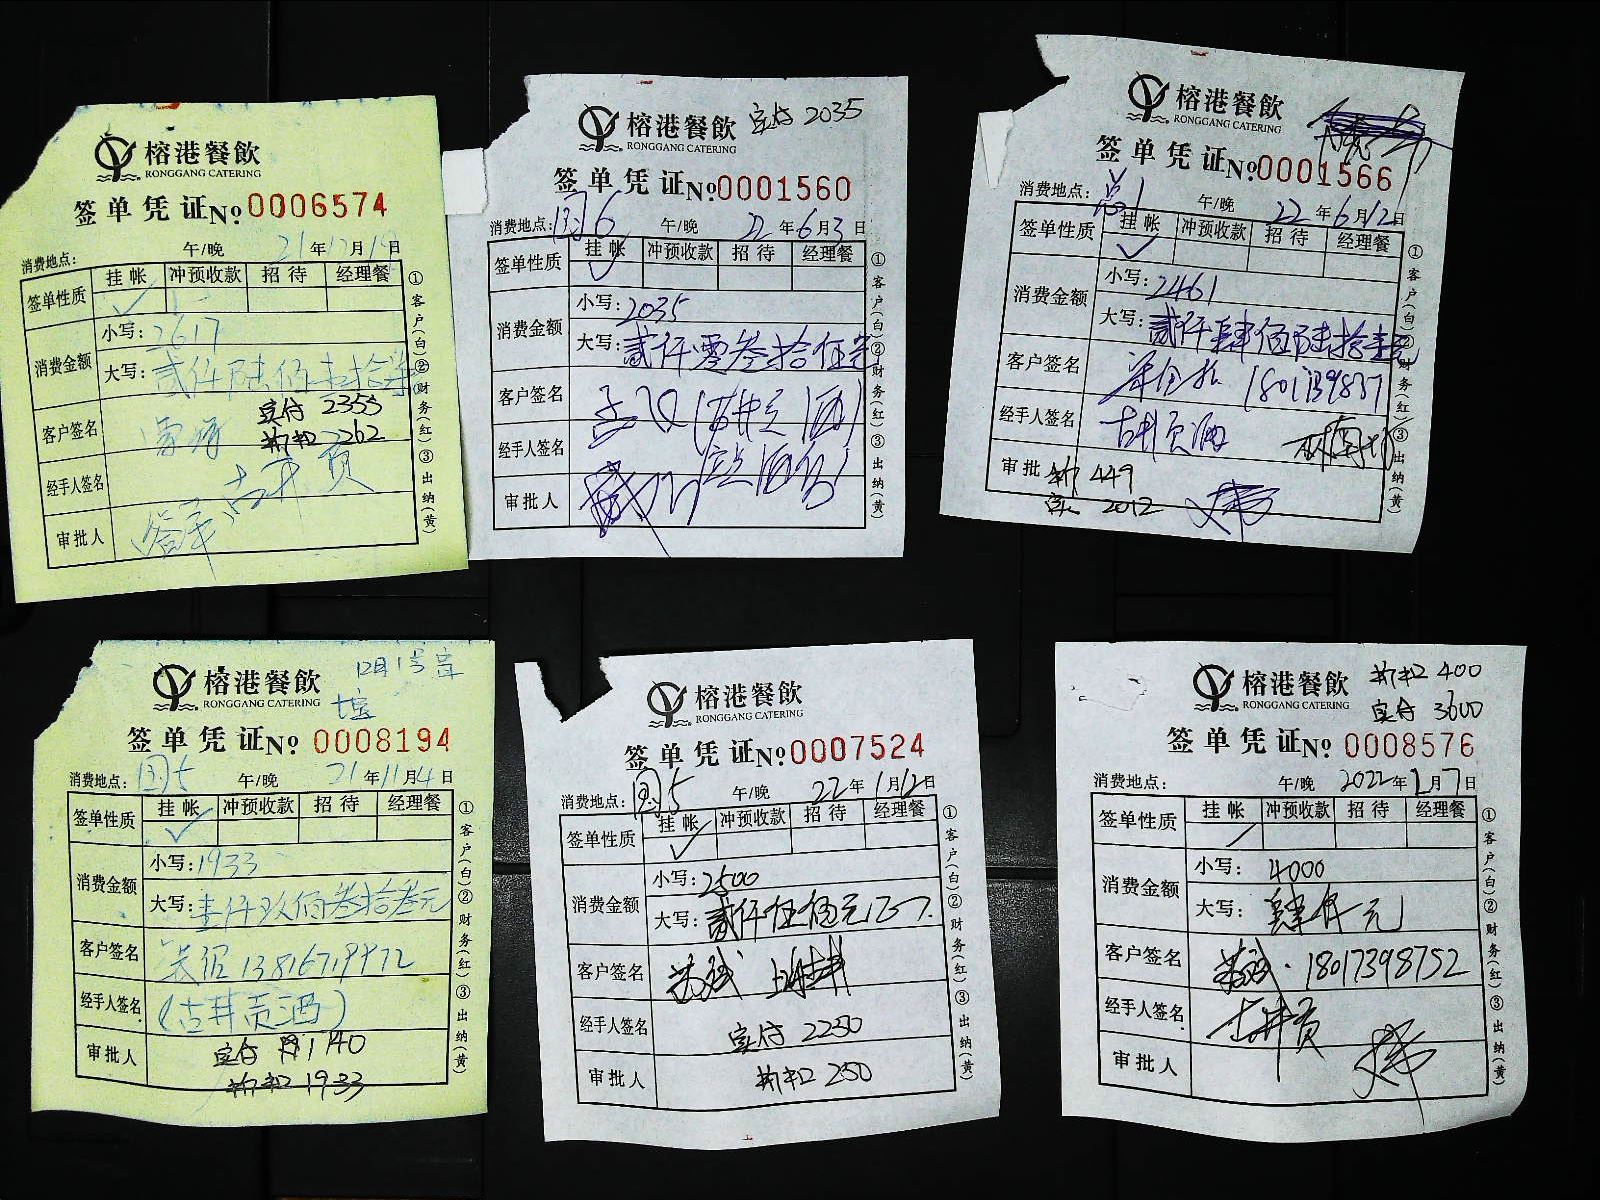 榕港餐飲
RONGGANG CATERING
签单凭证No 0006574
消费地点: 午/晚 21年12月19日
签单性质 挂帐 冲预收款 招待 经理餐
消费金额 小写: 2617
大写: 贰仟陆佰壹拾柒
客户签名 实付 2355
折扣 262
经手人签名 古井贡
审批人
①客户(白)②财务(红)③出纳(黄)
榕港餐飲 实付 2035
RONGGANG CATERING
签单凭证No 0001560
消费地点: 国6 午/晚 22年6月3日
签单性质 挂帐 冲预收款 招待 经理餐
消费金额 小写: 2035
大写: 贰仟零叁拾伍元
客户签名
经手人签名
审批人
①客户(白)②财务(红)③出纳(黄)
榕港餐飲
RONGGANG CATERING
签单凭证No 0001566
消费地点: 午/晚 22年6月12日
签单性质 挂帐 冲预收款 招待 经理餐
消费金额 小写: 2461
大写: 贰仟肆佰陆拾壹元
客户签名
经手人签名 古井贡酒
审批 折 449
实 2012
①客户(白)②财务(红)③出纳(黄)
榕港餐飲 12月1号
RONGGANG CATERING
签单凭证No 0008194
消费地点: 国5 午/晚 21年11月4日
签单性质 挂帐 冲预收款 招待 经理餐
消费金额 小写: 1933
大写: 壹仟玖佰叁拾叁元
客户签名
经手人签名 (古井贡酒)
审批人 实付 1740
折扣 1933
①客户(白)②财务(红)③出纳(黄)
榕港餐飲
RONGGANG CATERING
签单凭证No 0007524
消费地点: 国5 午/晚 22年1月12日
签单性质 挂帐 冲预收款 招待 经理餐
消费金额 小写: 2500
大写: 贰仟伍佰元
客户签名
经手人签名 实付 2250
审批人 折扣 250
①客户(白)②财务(红)③出纳(黄)
榕港餐飲 折扣 400
RONGGANG CATERING 实付 3600
签单凭证No 0008576
消费地点: 午/晚 2022年1月7日
签单性质 挂帐 冲预收款 招待 经理餐
消费金额 小写: 4000
大写: 肆仟元
客户签名 18017398752
经手人签名 古井贡
审批人
①客户(白)②财务(红)③出纳(黄)